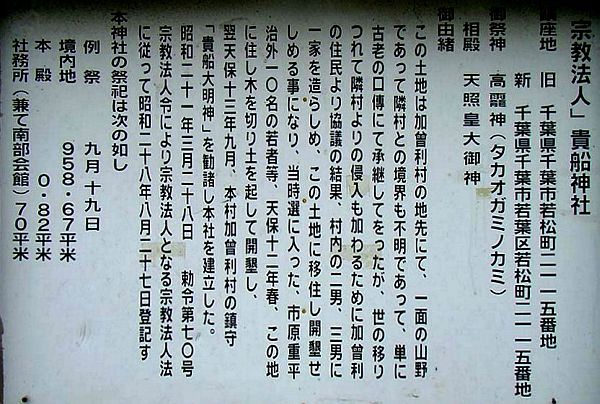 「宗教法人」貴船神社
鎮座地 旧 千葉県千葉市若松町二一一五番地
新 千葉県千葉市若葉区若松町二一一五番地
御祭神 高龗神(タカオガミノカミ)
相殿 天照皇大御神
御由緒
この土地は加曽利村の地先にて、一面の山野
であって隣村との境界も不明であって、単に
古老の口傳にて承継してをったが、世の移り
つれて隣村よりの侵入も加わるために加曽利
の住民より協議の結果、村内の二男、三男に
一家を造らしめ、この土地に移住し開墾せ
しめる事になり、当時選に入った、市原重平
治外一〇名の若者等、天保十二年春、この地
に住し木を切り土を起して開墾し、
翌天保十三年九月、本村加曽利村の鎮守
「貴船大明神」を勧請し本社を建立した。
昭和二十一年三月二十八日 勅令第七〇号
宗教法人令により宗教法人となる宗教法人法
に従って昭和二十八年八月二十七日登記す
本神社の祭祀は次の如し
例祭 九月十九日
境内地 958・67平米
本殿 0・82平米
社務所(兼て南部会館)70平米